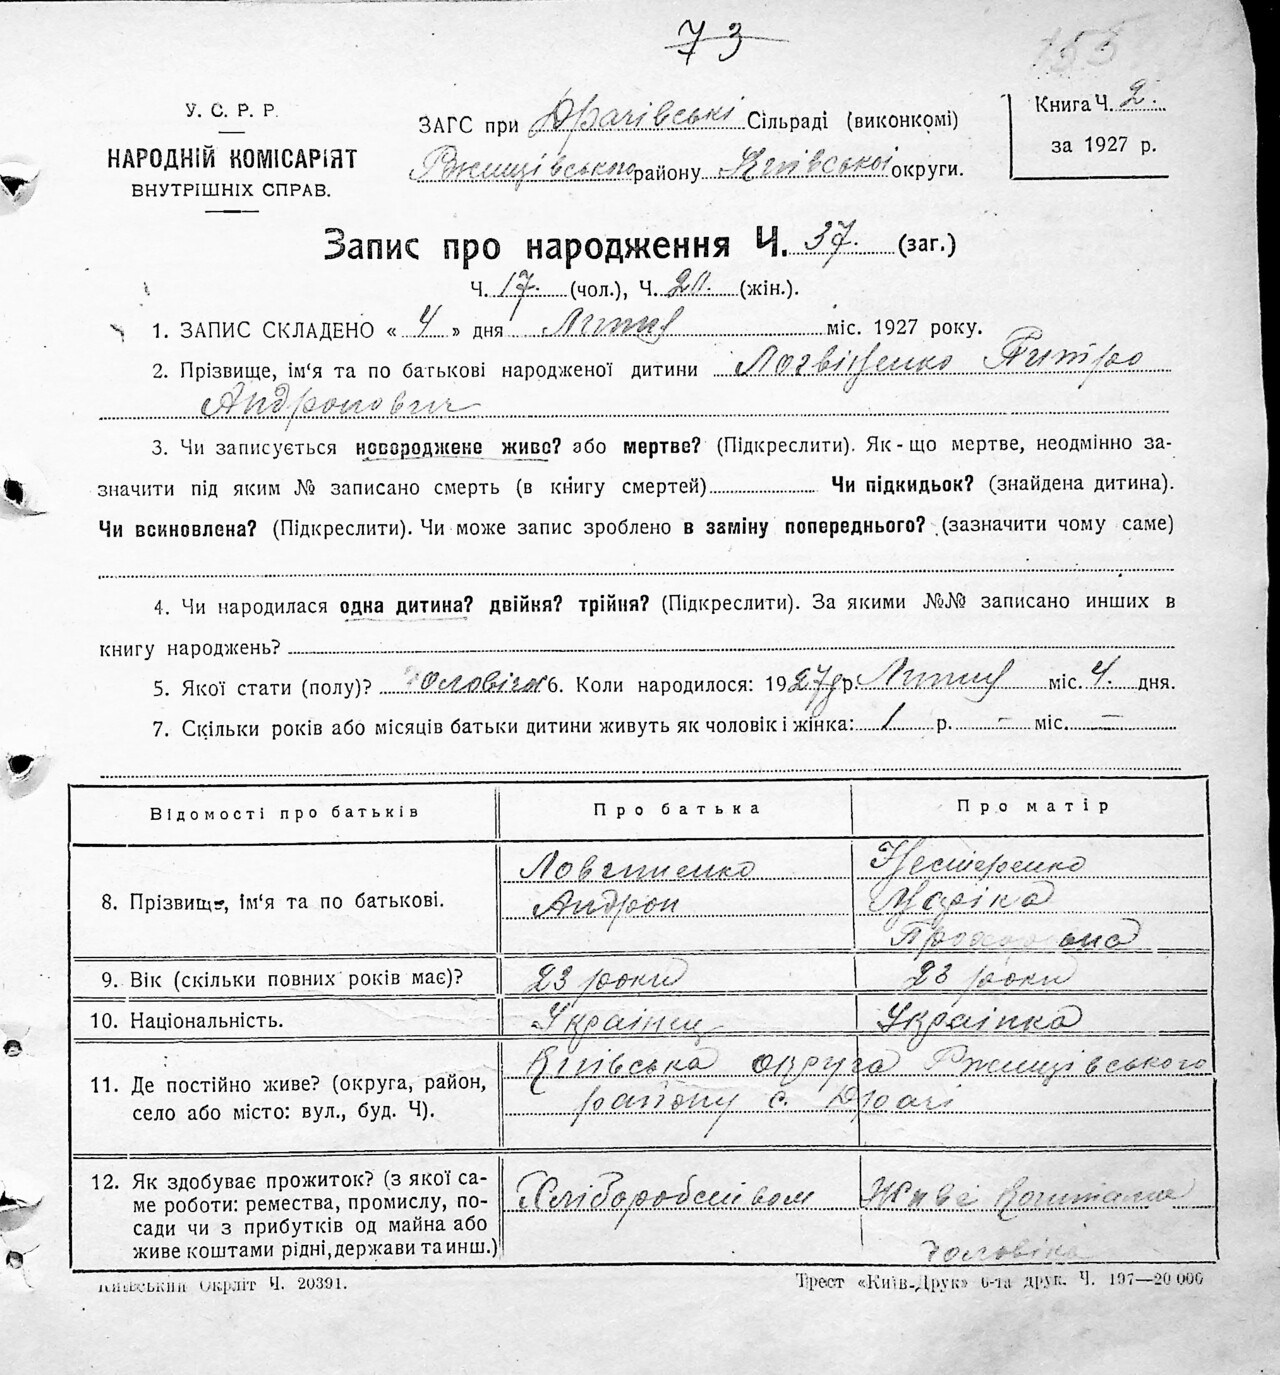 73
155
У. С. Р. Р.
НАРОДНІЙ КОМІСАРІЯТ
ВНУТРІШНІХ СПРАВ.
ЗАГС при Драчівські Сільраді (виконкомі)
Ржищівського району Київської округи.
Книга Ч. 2.
за 1927 р.
Запис про народження Ч. 37. (заг.)
Ч. 17. (чол.), Ч. 20. (жін.).
1. ЗАПИС СКЛАДЕНО « 4 » дня Липня міс. 1927 року.
2. Прізвище, ім‘я та по батькові народженої дитини Логвіненко Питро
Андронович
3. Чи записується новороджене живе? або мертве? (Підкреслити). Як-що мертве, неодмінно за-
значити під яким № записано смерть (в книгу смертей) Чи підкидьок? (знайдена дитина).
Чи всиновлена? (Підкреслити). Чи може запис зроблено в заміну попереднього? (зазначити чому саме)
4. Чи народилася одна дитина? двійня? трійня? (Підкреслити). За якими №№ записано инших в
книгу народжень?
5. Якої стати (полу)? 6. Коли народилося: 1927 р. Липня міс. 4. дня.
7. Скільки років або місяців батьки дитини живуть як чоловік і жінка: 1 р. – міс. –
Відомості про батьків Про батька Про матір
8. Прізвище, ім‘я та по батькові.
Андрон
Нестеренко
Маріка
9. Вік (скільки повних років має)? 23 роки 23 роки
10. Національність. Українец Українка
11. Де постійно живе? (округа, район,
село або місто: вул., буд. Ч).
Київська округа Ржищівського
району с. Драчі
12. Як здобуває прожиток? (з якої са-
ме роботи: ремества, промислу, по-
сади чи з прибутків од майна або
живе коштами рідні, держави та инш.)
Хліборобством
Живе коштами
чоловіка
Київський Окрліт Ч. 20391.
Трест «Київ-Друк» 6-та друк. Ч. 197—20 000